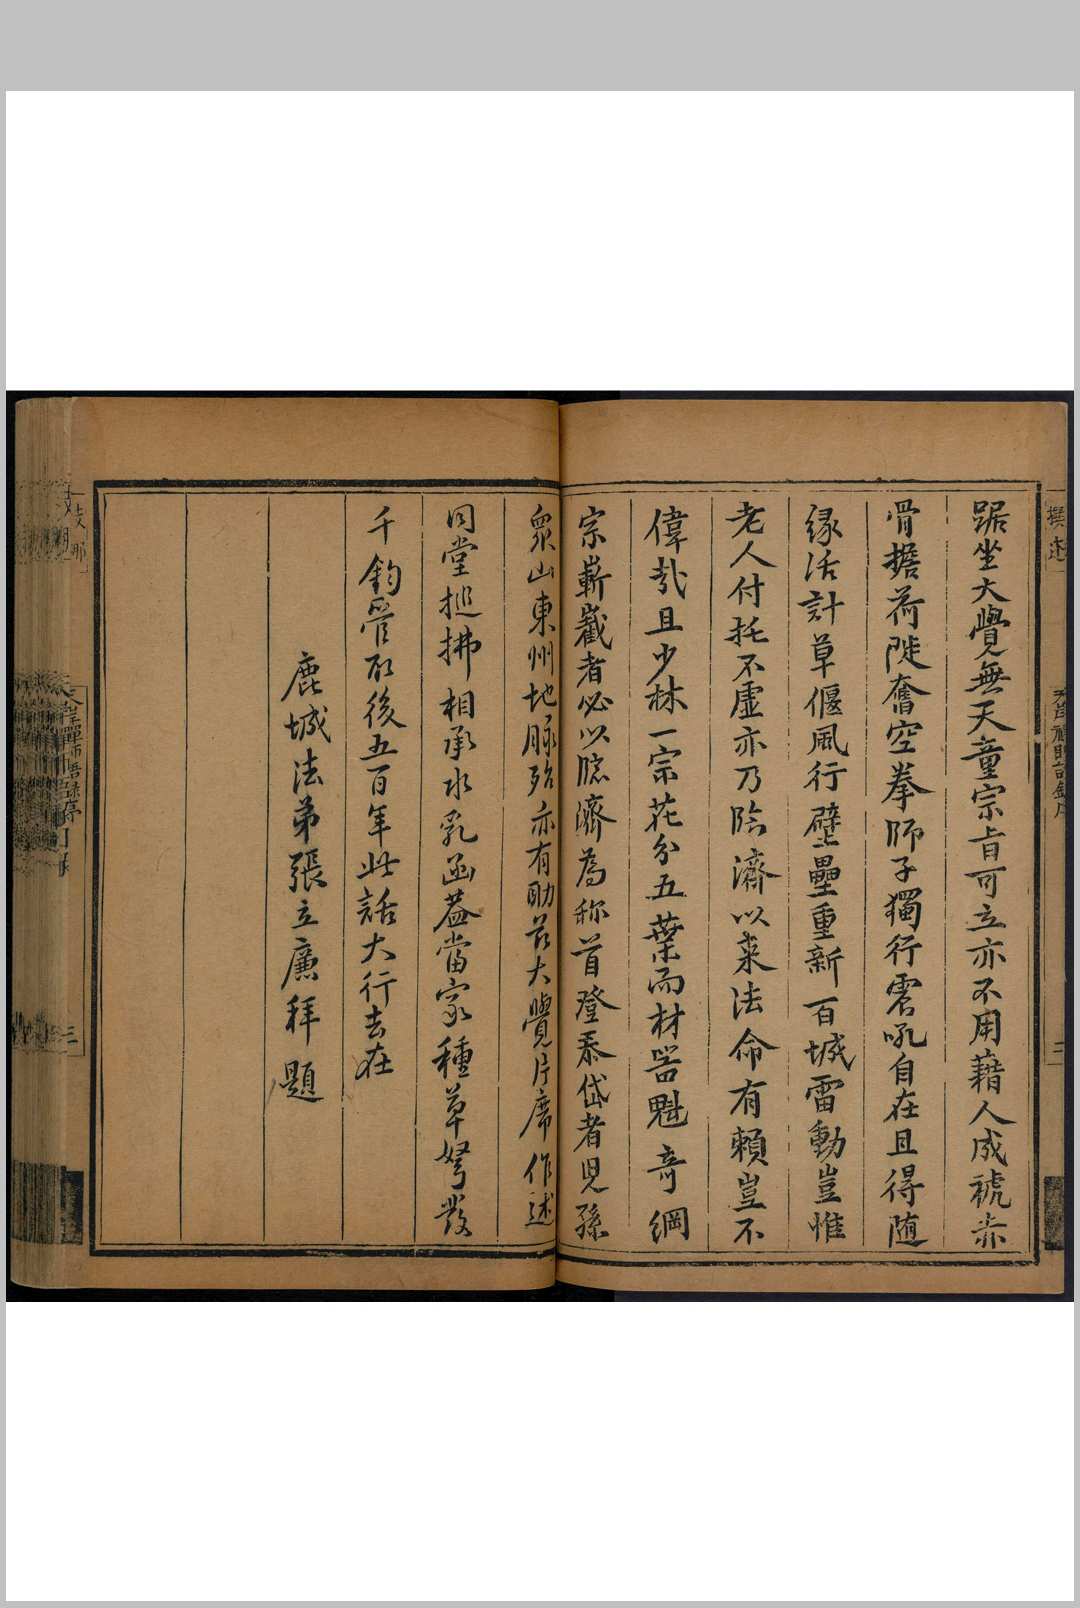 踞坐大覺無天童宗旨可立亦不用藉人成褫赤
骨擔荷陡奮空拳師子獨行雲吼自在且得随
緣活計草偃風行壁壘重新百城雷動豈惟
老人付托不虛亦乃臨濟以来法命有賴豈不
偉哉且少林一宗花分五葉而材器魁竒綱
宗嶄截者必以臨濟為称首登泰岱者兒孫
眾山東州地脉殆亦有助於大覺片席作述
同堂搥拂相承水乳函葢當家種草弩發
千鈞管取後五百年此話大行去在
鹿城法弟張立廉拜題
撰述
三
支那
天岸禪師語錄序
三